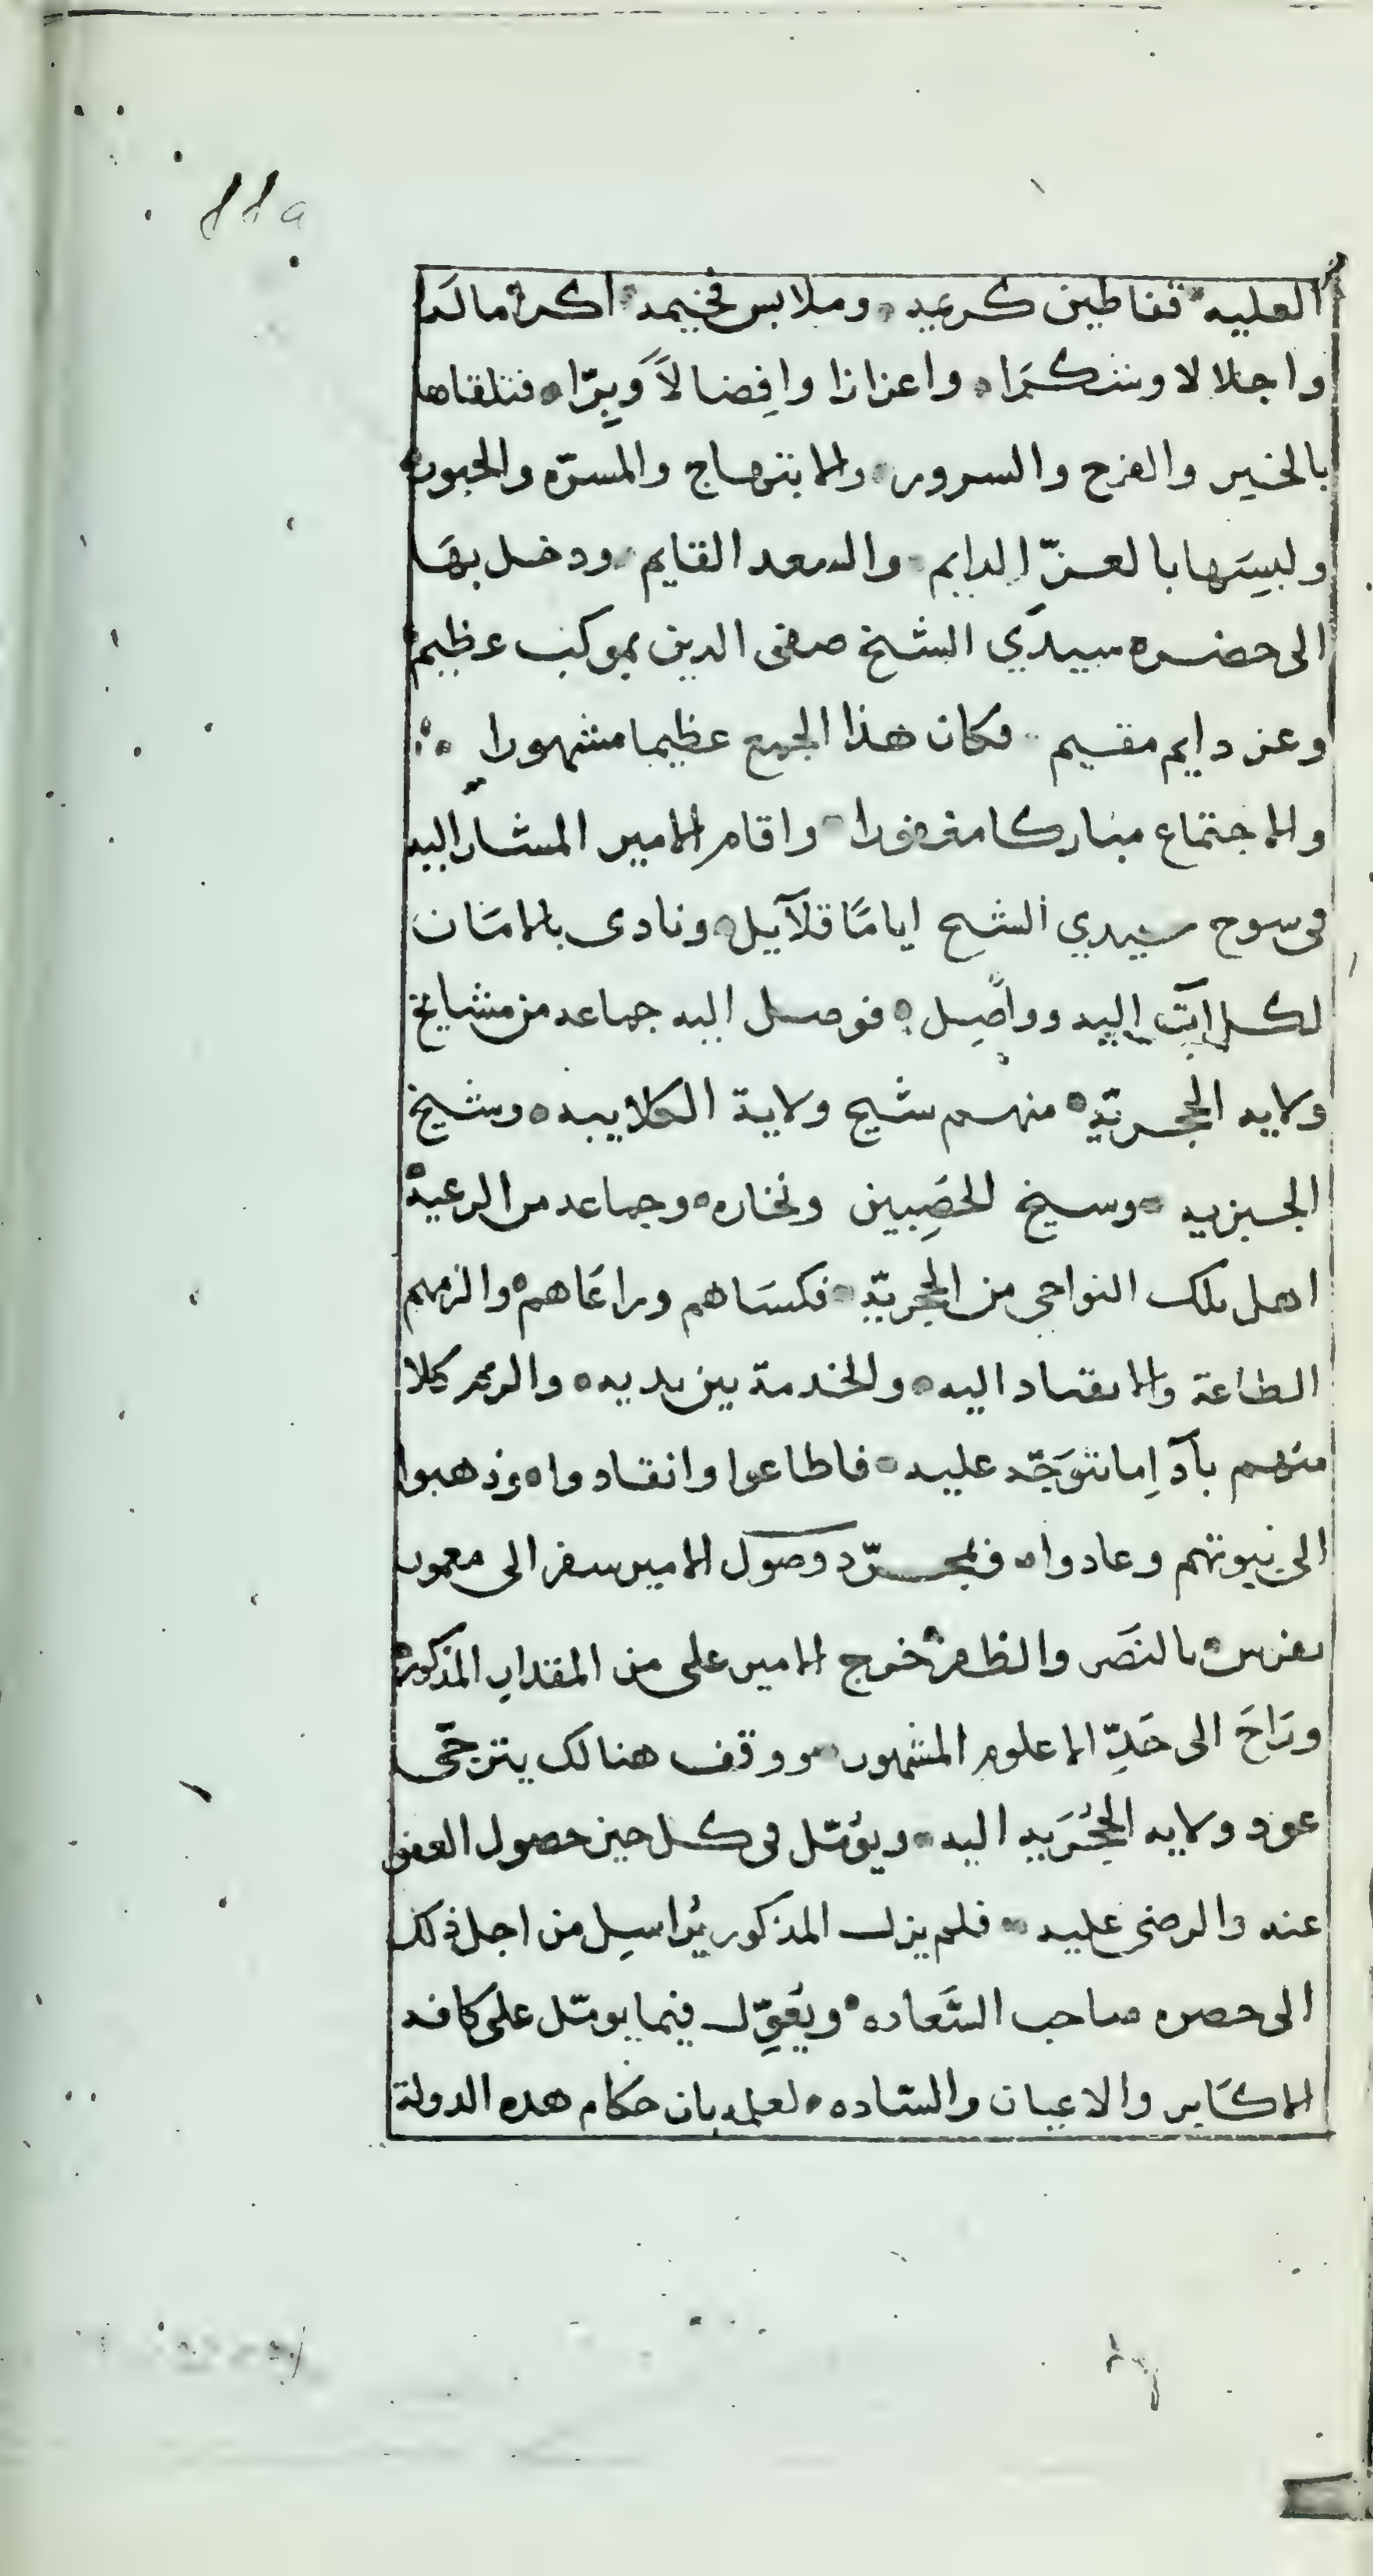 العليه قفاطين كريمه وملابس فخيمه اكراما لها
واجلالا وشكرا واعزازا وافضالًا وبِرّا فتلقاها
بالخير والفرح والسرور والابتهاج والمسرّه والحبور
ولبسِهَا بالعزّ الدايم والسعد القايم ودخل بهَا
الى حضره سيدي الشيخ صفى الدين بموكب عظيم
وعز دايم مقيم فكان هذا الجمع عظيما مشهورا
والاجتماع مباركا موفورا واقام الامير المشار اليه
فى سوح سيدي الشيخ ايامًا قلآيل ونادى بالامَان
لكل آتٍ اليه وواصِل فوصل اليه جماعه من مشايخ
ولايه الحجريّه منهم شيخ ولاية الكلايبه وشيخ
الجبزيه وسيخ الحصَبِين وبخاره وجماعه من الرعيه
اهل تلك النواحى من الحجريّه فكسَاهم وراعَاهم والزمهم
الطاعة والانقياد اليه والخدمة بين يديه والزم كلا
منهم بآدآ ما يتوَجّه عليه فاطاعوا وانقادوا وذهبوا
الى بيوتهم وعادوا فبمجرّد وصول الامير سفر الى معمور
تعز بالنصَر والظفر خرج الامير على من المقدار المذكور
ورَاحَ الى حَدِّ الاعلوم المشهور ووقف هنالك يترجّى
عود ولايه الحُجُرَيه اليه ويؤمّل فى كل حين حصول العفو
عنه والرضى عليه فلم يزل المذكور يُراسِل من اجل ذلك
الى حصره صاحب السَّعاده ويعَوِّل فيما يومّل على كافه
الاكَابر والاعيان والسّاده لعلمه بان حكام هذه الدولة